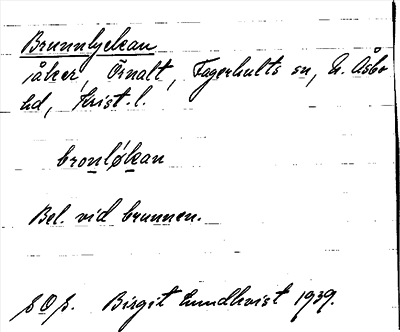 Brunnlyckan
åker, Örnalt, Fagerhults sn, N. Åsbo
hd, Krist. l.
bronløkan
Bel. vid brunnen.
Birgit Lundkvist 1939.